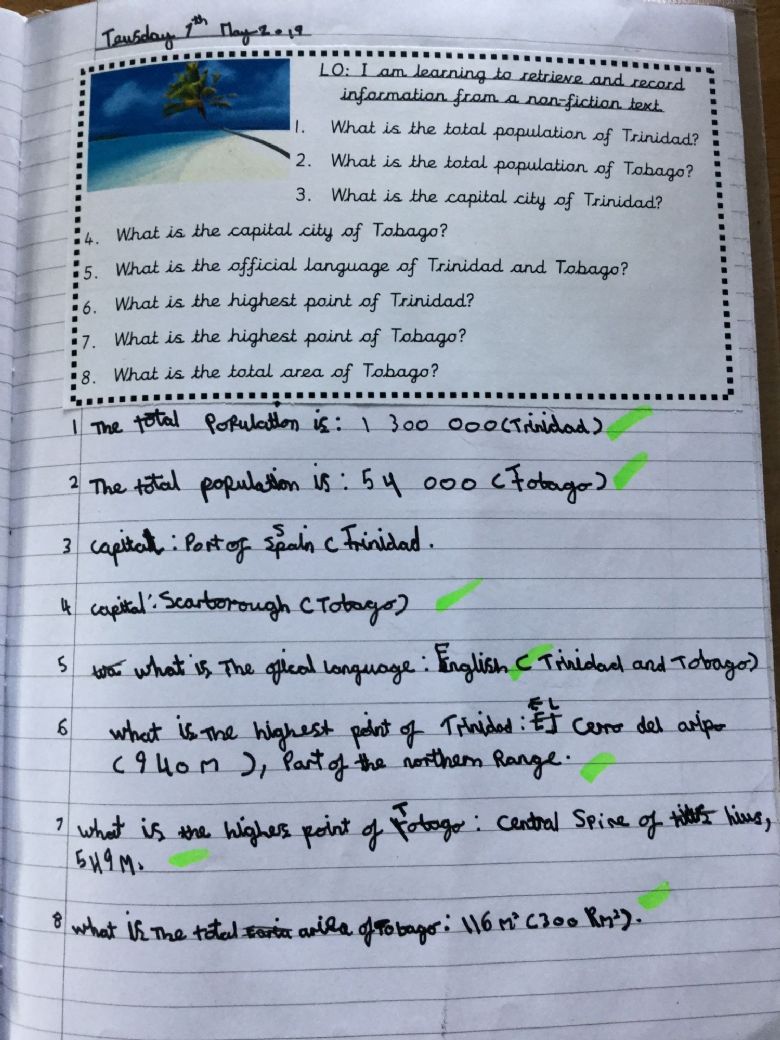 Teusday 7th May 2019
LO: I am learning to retrieve and record
information from a non-fiction text.
1. What is the total population of Trinidad?
2. What is the total population of Tobago?
3. What is the capital city of Trinidad?
4. What is the capital city of Tobago?
5. What is the official language of Trinidad and Tobago?
6. What is the highest point of Trinidad?
7. What is the highest point of Tobago?
8. What is the total area of Tobago?
1 The total Population is: 1 300 000 (Trinidad)
2 The total population is: 54 000 (Tobago)
3 capital: Port of Spain ( Trinidad.
4 capital: Scarborough (Tobago)
5 what is The offical language: English ( Trinidad and Tobago)
6 what is The highest point of Trinidad: EL Cerro del aripo
(940 M), Part of the northern Range.
7 what is the highes point of Tobago: Central Spine of hius,
549 M.
8 what is The total area of Tobago: 116 m² (300 Km²).